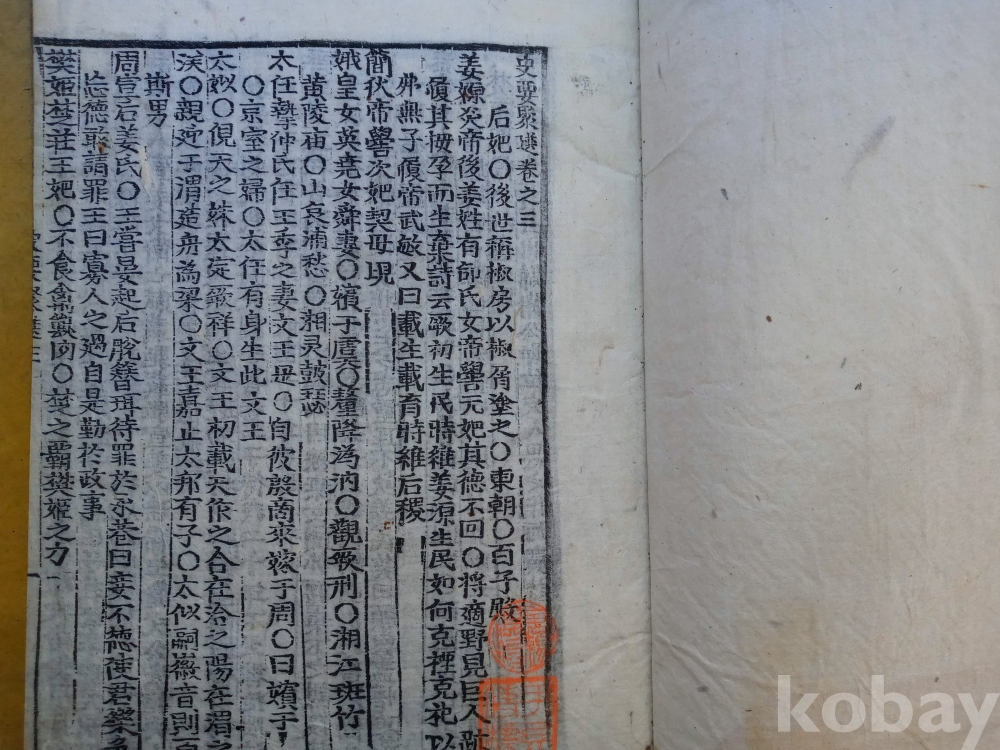 史要聚選卷之三
后妃〇後世稱椒房以椒屑塗之〇東朝〇百子殿
姜嫄炎帝後姜姓有邰氏女帝嚳元妃其德不回〇將適野見巨人跡
履其拇孕而生棄詩云厥初生民時維姜源生民如何克禋克祀以
弗無子履帝武敏又曰載生載育時維后稷
簡狄帝嚳次妃契母
娥皇女英堯女舜妻〇嬪于虞〇釐降潙汭〇觀厥刑〇湘江班竹
黄陵庙〇山哀浦愁〇湘灵鼓瑟
太任摯仲氏任王季之妻文王是〇自彼殷商來嫁于周〇曰嬪于
〇京室之婦〇太任有身生此文王
太姒〇俔天之妹太定厥祥〇文王初載天作之合在洽之陽在渭之
涘〇親迎于渭造舟為梁〇文王嘉止太邦有子〇太似嗣徽音則百
斯男
周宣后姜氏〇王嘗晏起后脫簪珥待罪於永巷曰妾不德使君樂
忘德敢請罪王曰寡人之過自是勤於政事
樊姬楚莊王妃〇不食禽獸肉〇楚之霸樊姬之力
kobay